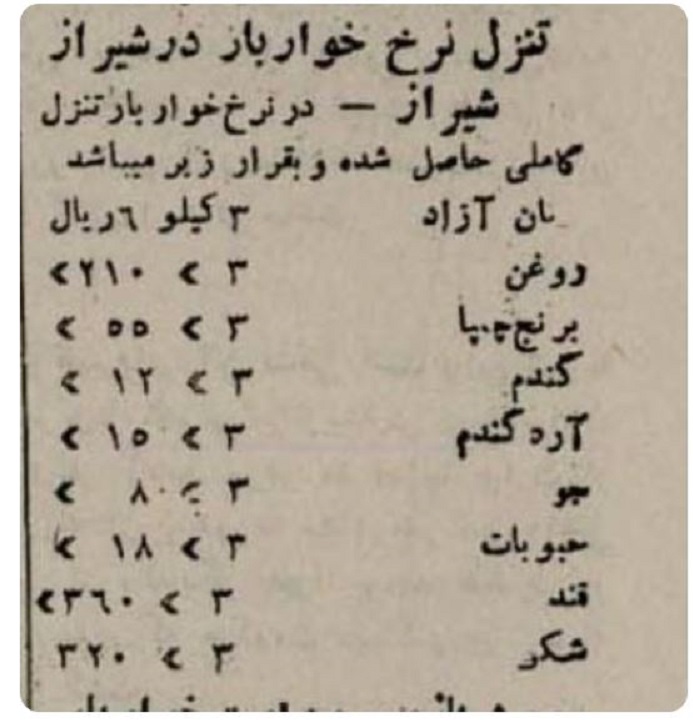 تنزل نرخ خواربار درشیراز
شیراز — درنرخ خواربارتنزل
کاملی حاصل شده و بقرار زیر میباشد
نان آزاد ۳ کیلو ٦ریال
روغن ۳ » ۲۱۰»
برنج چپا ۳ » ٥٥ »
گندم ۳ » ۱۲ »
آرد گندم ۳ » ۱٥ »
جو ۳ » ۸ »
حبوبات ۳ » ۱۸ »
قند ۳ » ۳٦۰»
شکر ۳ » ۳۲۰